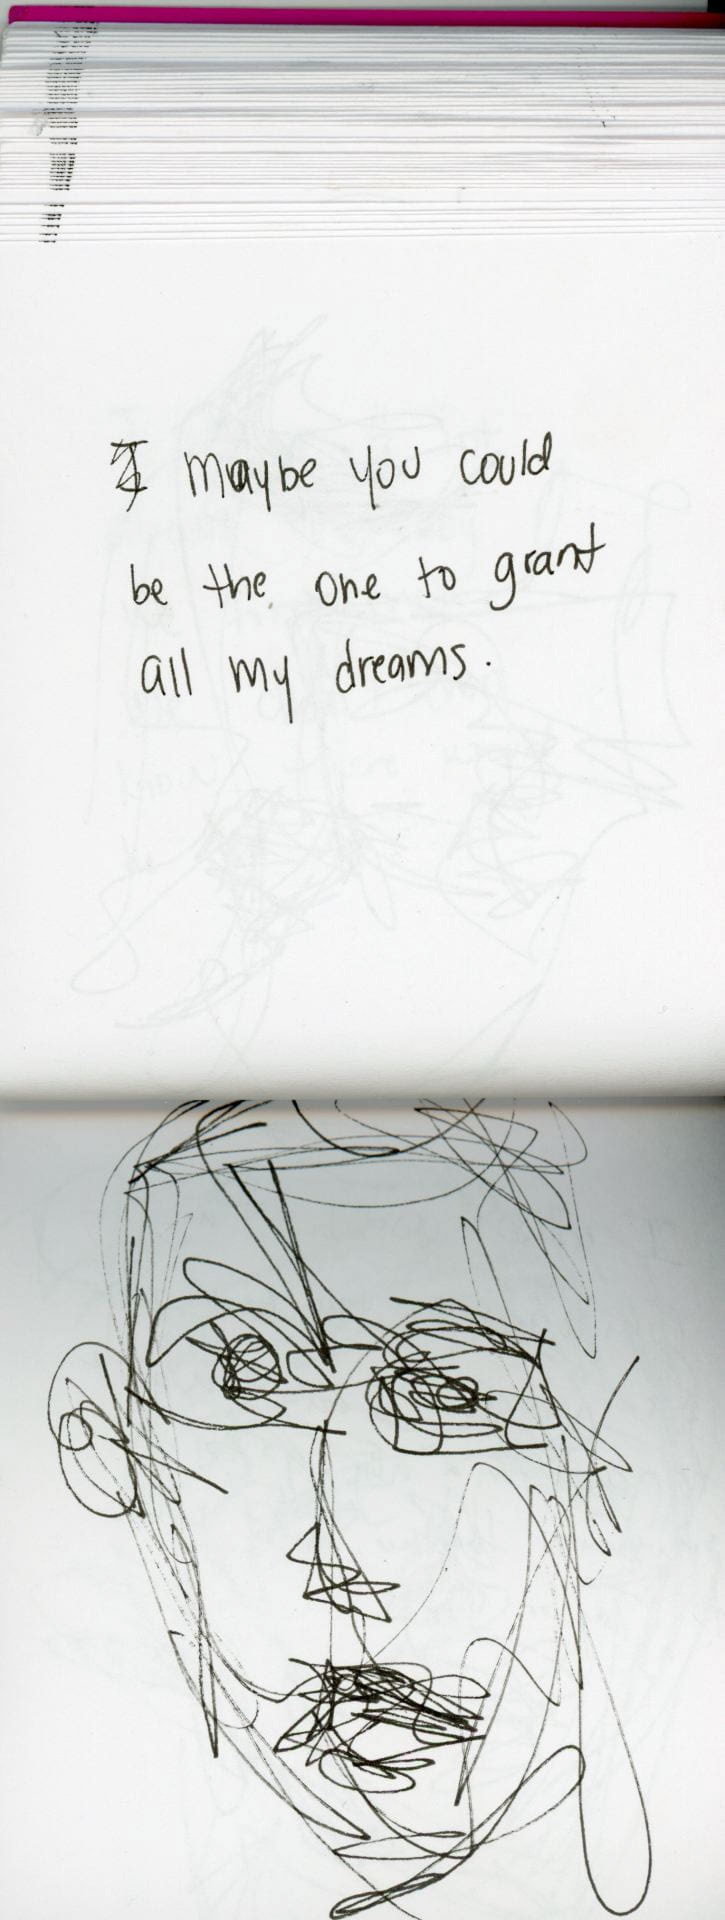 maybe you could
be the one to grant
all my dreams.